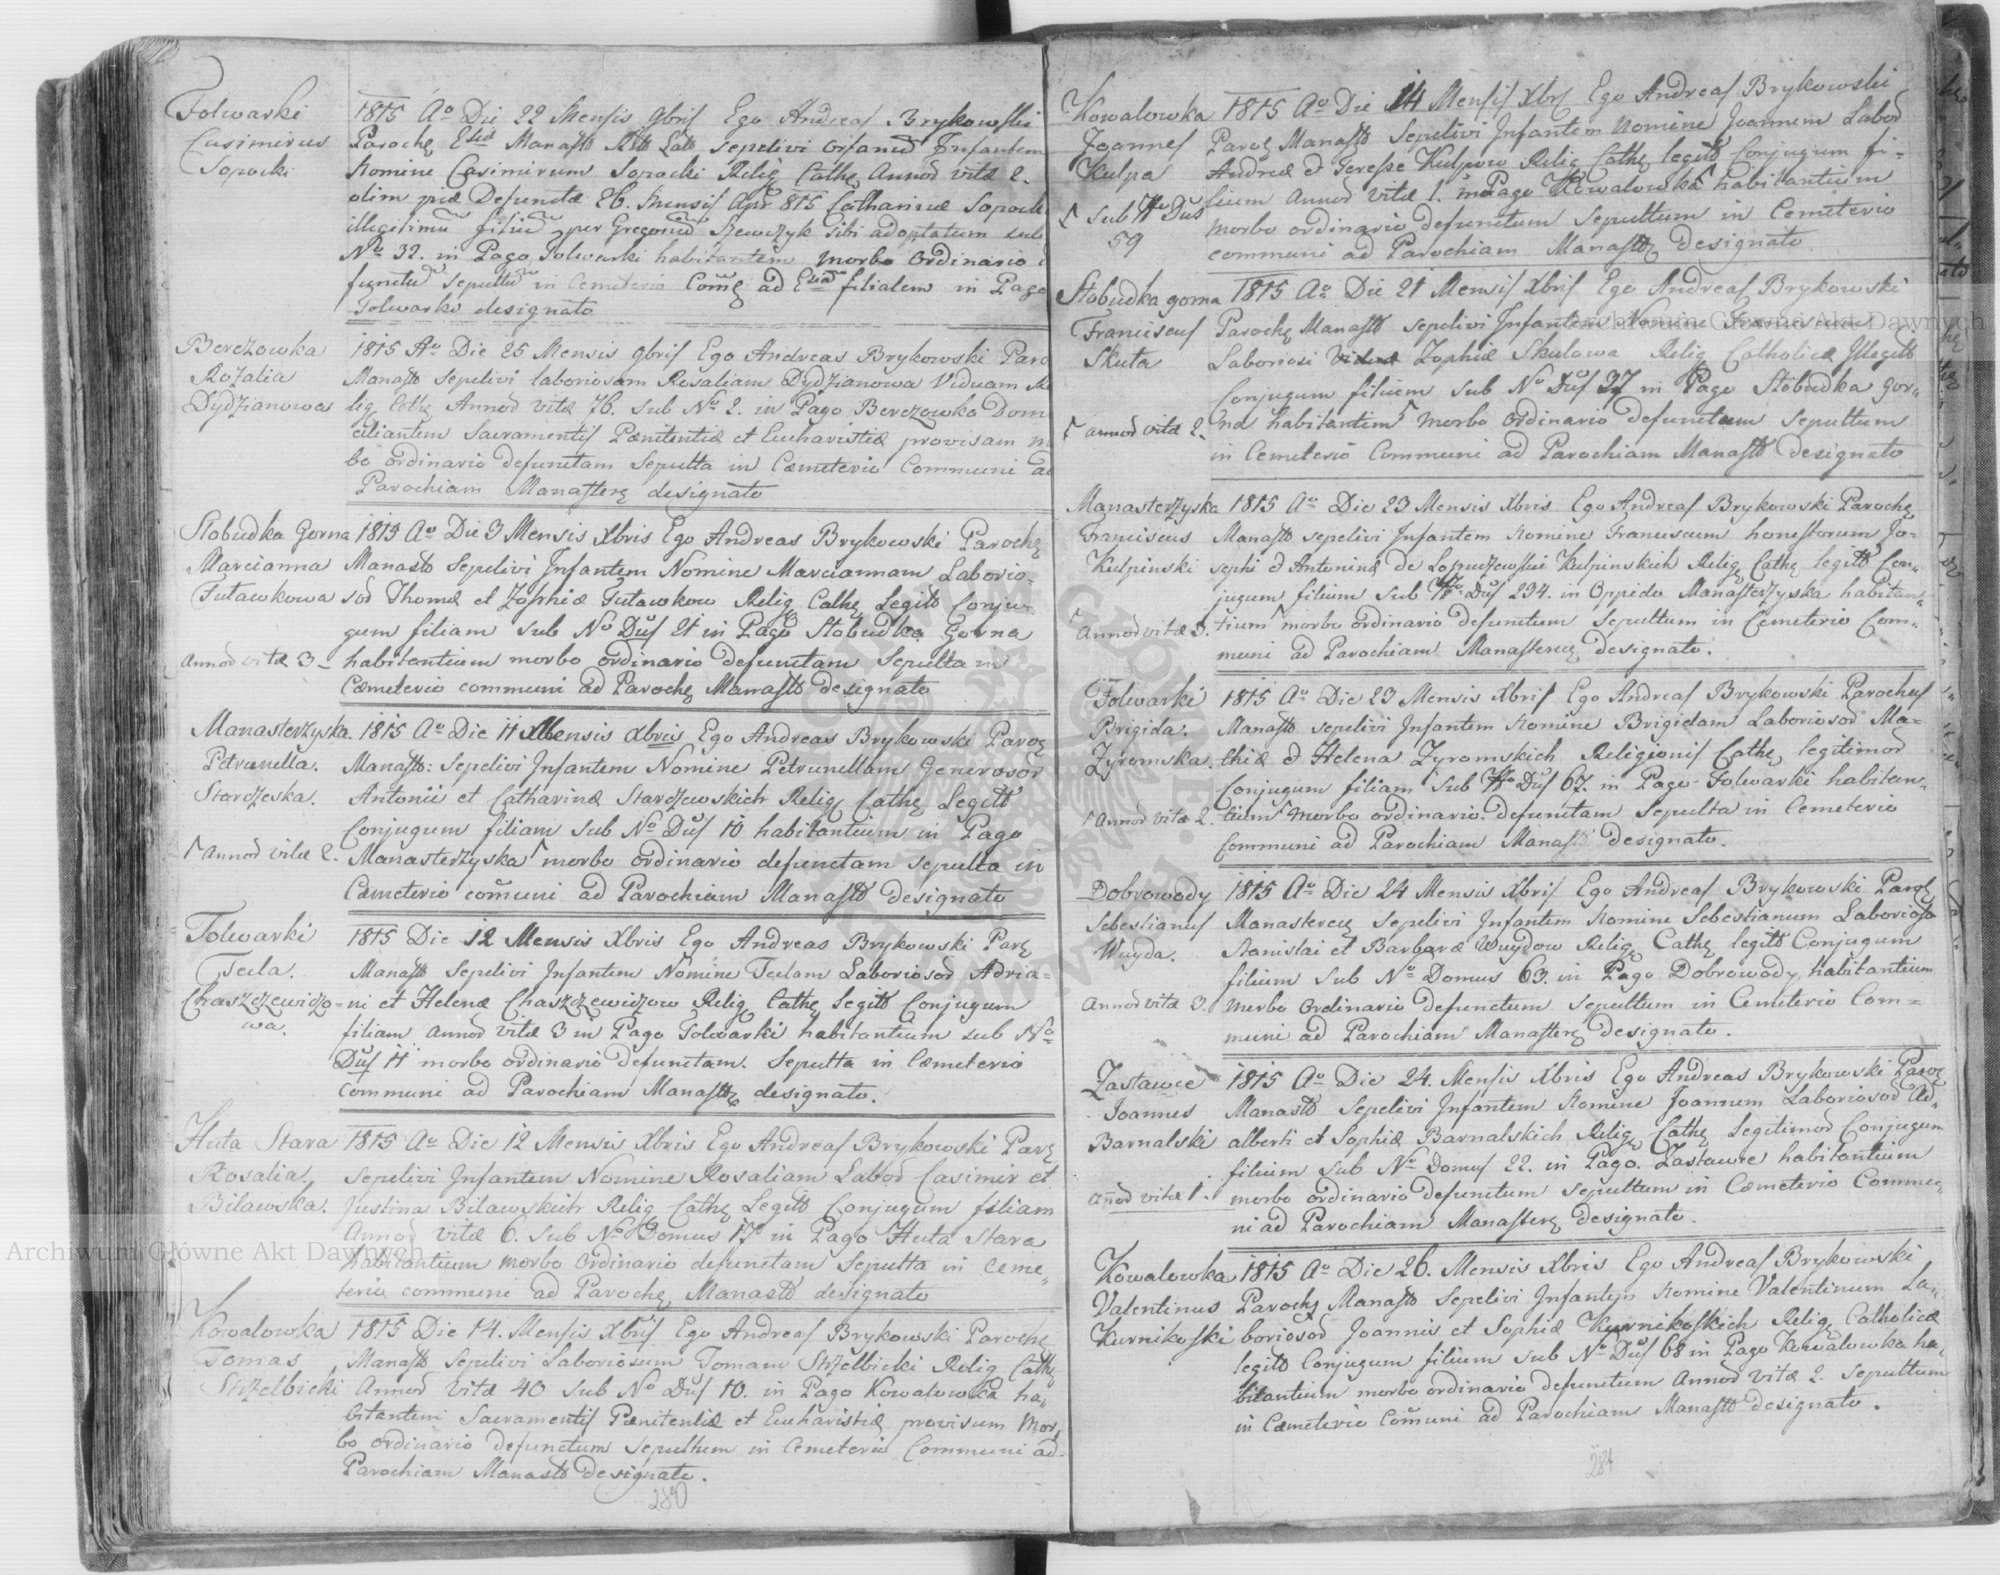 Folwarki
Casimirus
Sopocki
1815 Ao Die 22 Mensis 9bris Ego Andreas Brykowski
Paroche Manast Lat sepelivi Infantem
Nomine Casimirum Sopocki Relig Cathe Annod vitæ 2.
olim piæ Defunctæ 26. Mensis Apr 815 Catharinæ Sopock
illegitimũ filiũ per Gregoriũ Szewczyk sibi adoptatum sub
No 32. in Pago Folwarki habitantem morbo Ordinario
functũ sepultũ in Cemeterio Com̃e ad filialem in Pago
Folwarki designato
Berezowka
Rozalia
Dydzianowa
1815 Ao Die 25 Mensis 9bris Ego Andreas Brykowski Paro
Manast sepelivi laboriosam Rosaliam Dydzianowa Viduam Re
lig Cathe Annod vitæ 76. sub No 2. in Pago Berezowka Dom
ciliantem Sacramentis Pænitentiæ et Eucharistiæ provisam m
bo ordinario defunctam Sepulta in Cæmeterio Communi ad
Parochiam Manastere designato
Slobudka Gorna
Marcianna
Futawkowa
Annod vitæ 3
1815 Ao Die 3 Mensis Xbris Ego Andreas Brykowski Paroche
Manast Sepelivi Infantem Nomine Marciannam Laborio-
sod Thomæ et Zophiæ Futawkow Relig Cathe Legitt Conju-
gum filiam sub No Dus 21 in Pago Slobudka Gorna
habitantium morbo ordinario defunctam Sepulta in
Cæmeterio communi ad Paroche Manast designato
Manasterzyska
Petrunella.
Starzeska.
Annod vitæ 2.
1815 Ao Die 11 Mensis Xbris Ego Andreas Brykowski Paroe
Manast: Sepelivi Infantem Nomine Petrunellam Generosod
Antonii et Catharinæ Starzewskich Relig Cathe Legitt
Conjugum filiam sub No Dus 10 habitantium in Pago
Manasterzyska morbo ordinario defunctam sepulta in
Cæmeterio com̃uni ad Parochiam Manast designato
Folwarki
Tecla.
Chraszczewiczo-
wa.
1815 Die 12 Mensis Xbris Ego Andreas Brykowski Pare
Manast Sepelivi Infantem Nomine Teclam Laboriosod Adria-
ni et Helenæ Chraszczewiczow Relig Cathe Legitt Conjugum
filiam annod vitæ 3 in Pago Folwarki habitantium sub No
Dus 11 morbo ordinario defunctam. Sepulta in Cæmeterio
communi ad Parochiam Manast designato.
Huta Stara
Rosalia.
Bilawska.
1815 Ao Die 12 Mensis Xbris Ego Andreas Brykowski Pare
sepelivi Infantem Nomine Rosaliam Labod Casimir et
Justina Bilawskich Relig Cathe Legitt Conjugum filiam
Annod vitæ 6. sub No Domus 17 in Pago Huta Stara
habitantium morbo ordinario defunctam Sepulta in Ceme-
terio communi ad Paroche Manast designato
Kowalowka
Tomas
Strzelbicki
1815 Die 14. Mensis Xbris Ego Andreas Brykowski Paroche
Manast Sepelivi Laboriosum Tomam Strzelbicki Relig Cathe
Annod vitæ 40 sub No Dus 10. in Pago Kowalowka ha-
bitantem Sacramentis Pænitentiæ et Eucharistiæ provisum Mor-
bo ordinario defunctum Sepultum in Cemeterio Communi ad
Parochiam Manast designato.
280
Kowalowka
Joannes
Kulpa
sub No Dus
59
1815 Ao Die 14 Mensis Xbris Ego Andreas Brykowski
Paroe Manast Sepelivi Infantem Nomine Joannem Labod
Andreæ et Teresse Kulpow Relig Cathe legitt Conjugum fi-
lium Annod vitæ 1. in Pago Kowalowka habitantium
morbo ordinario defunctum sepultum in Cemeterio
communi ad Parochiam Manast designato
Slobudka gorna
Franciscus
Skuta
annod vitæ 2.
1815 Ao Die 21 Mensis Xbris Ego Andreas Brykowski
Paroche Manast sepelivi Infantem Nomine Franciscum
Laboriosi Zophiæ Skutowa Relig Catholicæ Illegitt
Conjugum filium sub No Dus 37 in Pago Slobudka gor-
na habitantem morbo ordinario defunctum sepultum
in Cemeterio Communi ad Parochiam Manast designato
Manasterzyska
Franciscus
Kulpinski
Annod vitæ 3.
1815 Ao Die 23 Mensis Xbris Ego Andreas Brykowski Paroche
Manast sepelivi Infantem Nomine Franciscum honestorum Jo-
sephi et Antoninæ de Lopuszewski Kulpinskich Relig Cathe legitt Con-
jugum filium sub No Dus 234. in Oppido Manasterzyska habitan-
tium morbo ordinario defunctum Sepultum in Cemeterio Com-
muni ad Parochiam Manastere designato.
Folwarki
Brigida.
Zyromska.
Annod vitæ 2.
1815 Ao Die 23 Mensis Xbris Ego Andreas Brykowski Parochus
Manast sepelivi Infantem Nomine Brigidam Laboriosod Ma-
thiæ et Helena Zyromskich Religionis Cathe legitimod
Conjugum filiam sub No Dus 67. in Pago Folwarki habitan-
tium morbo ordinario defunctam Sepulta in Cemeterio
Communi ad Parochiam Manast designato.
Dobrowody
Sebestianus
Wuyda.
Annod vitæ 3.
1815 Ao Die 24 Mensis Xbris Ego Andreas Brykowski Paroe
Manasterece Sepelivi Infantem Nomine Sebestianum Laborioso
Stanislai et Barbaræ Wuydow Relig Cathe legitt Conjugum
filium sub No Domus 63. in Pago Dobrowody habitantium
morbo ordinario defunctum sepultum in Cemeterio Com-
muni ad Parochiam Manastere designato.
Zastawce
Joannes
Barnalski
an̄od vitæ 1.
1815 Ao Die 24. Mensis Xbris Ego Andreas Brykowski Paroe
Manast Sepelivi Infantem Nomine Joannem Laboriosod Ad-
alberti et Sophiæ Barnalskich Relig Cathe Legitimod Conjugum
filium sub No Domus 22. in Pago. Zastawce habitantium
morbo ordinario defunctum sepultum in Cæmeterio Commu-
ni ad Parochiam Manastere designato.
Kowalowka
Valentinus
Kurnikoski
1815 Ao Die 26. Mensis Xbris Ego Andreas Brykowski
Paroche Manast Sepelivi Infantem Nomine Valentinum La-
boriosod Joannis et Sophiæ Kurnikoskich Relig Catholicæ
legitt Conjugum filium sub No Dus 68 in Pago Kowalowka ha-
bitantium morbo ordinario defunctum Annod vitæ 2. Sepultum
in Cæmeterio Com̃uni ad Parochiam Manast designato.
281
Archiwum Główne Akt Dawnych
Archiwum Główne Akt Dawnych